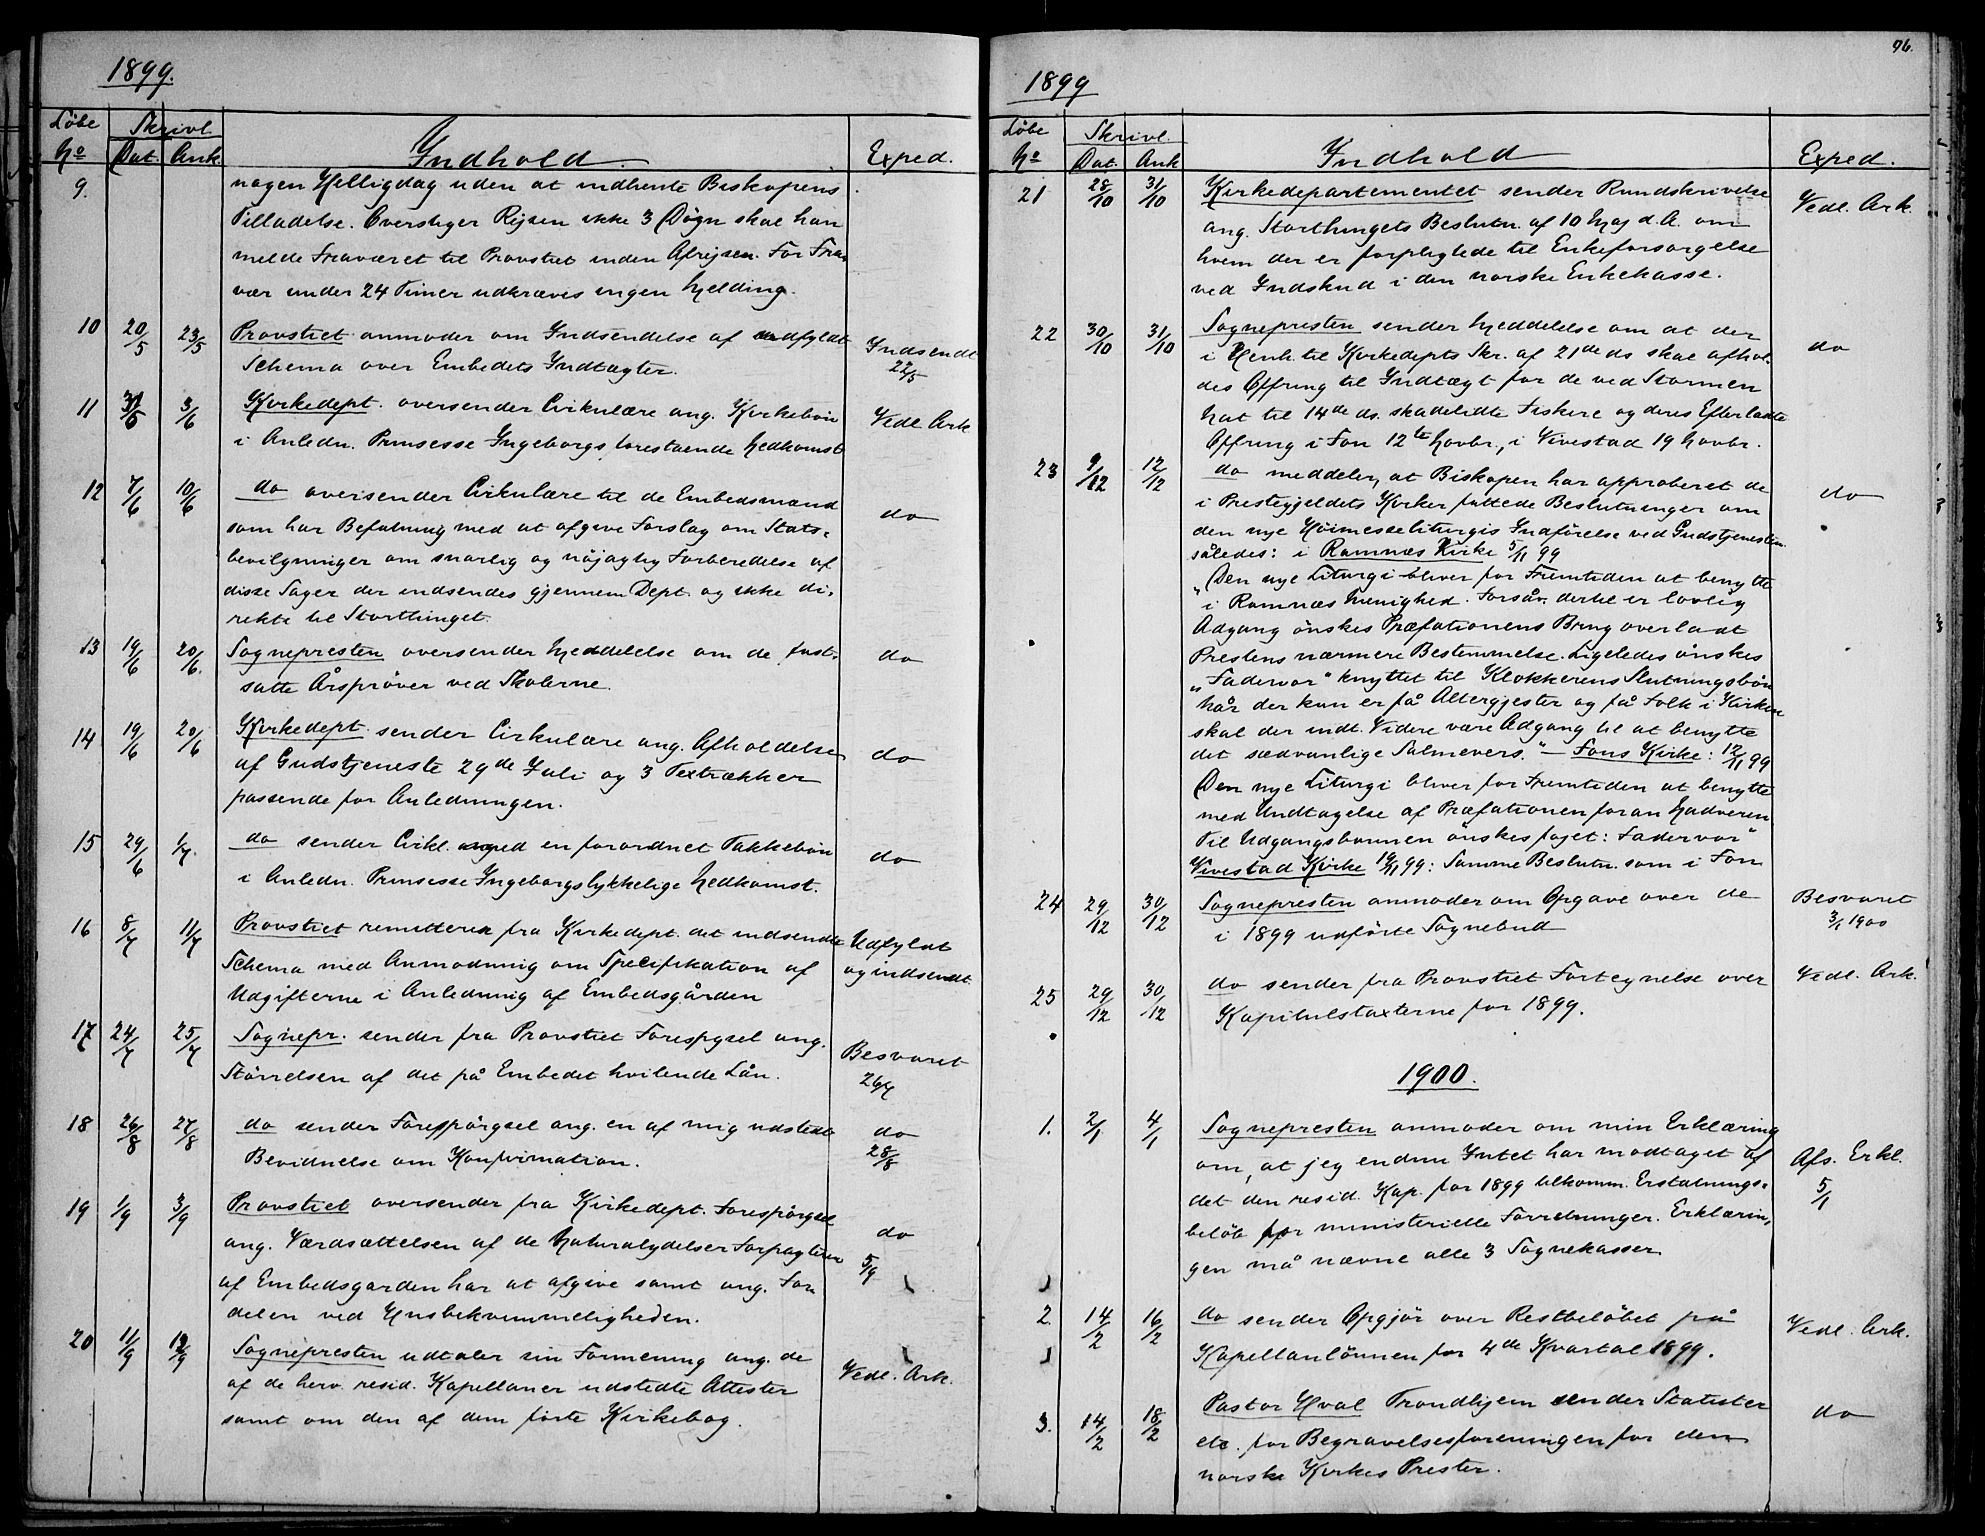 1899.
Løbe Skrivl.
No Dat. Ank. Indhold. Exped.
9. nogen Helligdag uden at indhente Biskopens
Tilladelse. Overstiger Rejsen ikke 3 Døgn skal han
melde Fraværet til Provstiet inden Afrejsen. For Fra-
vær under 24 Timer udkræves ingen Melding.
10 20/5 23/5 Provstiet anmoder om Indsendelse af udfyldt Indsendt
Schema over Embedets Indtægter. 22/5
11 31/5 3/6 Kirkedept. oversender Cirkulære ang. Kirkebøn Vedl. Ark
i Anledn. Prinsesse Ingeborgs forestaaende Nedkomst
12 7/6 10/6 do oversender Cirkulære til de Embedsmænd do
som har Befatning med at afgive Forslag om Stats-
bevilgninger om snarlig og nøjagtig Forberedelse af
disse Sager der indsendes gjennem Dept. og ikke di-
rekte til Storthinget.
13 19/6 20/6. Sognepresten oversender Meddelelse om de fast- do
satte Årsprøver ved Skolerne.
14 19/6 20/6 Kirkedept. sender Cirkulære ang. Afholdelse do
af Gudstjeneste 29de Juli og 3 Textrækker
passende for Anledningen.
15 29/6 1/7. do sender Cirkl. med en forordnet Takkebøn do
i Anledn. Prinsesse Ingeborgs lykkelige Nedkomst.
16 8/7 11/7 Provstiet remitterer fra Kirkedept. det indsendte Udfyldt
Schema med Anmodning om Specifikation af og indsendt.
Udgifterne i Anledning af Embedsgården
17 24/7 25/7 Sognepr. sender fra Provstiet Forespgsel ang. Besvaret
Størrelsen af det på Embedet hvilende Lån. 26/7
18 26/8 27/8 do sender Forespørgsel ang. en af mig udstedt do
Bevidnelse om Konfirmation. 28/8
19 1/9 3/9 Provstiet oversender fra Kirkedept. Forespørgsel do
ang. Værdsættelsen af de Naturalydelser Forpagteren 5/9
af Embedsgarden har at afgive samt ang. For-
delen ved Husbekvemmeligheden.
20 11/9 12/9 Sognepresten udtaler sin Formening ang. de Vedl. Ark.
af de herv. resid. Kapellaner udstedte Attester
samt om den af dem førte Kirkebog.
96.
1899
Løbe Skrivl.
No Dat. Ank Indhold Exped.
21 28/10 31/10 Kirkedepartementet sender Rundskrivelse Vedl. Ark.
ang. Storthingets Beslutn. af 10 Maj d.A. om
hvem der er forpligtede til Enkeforsørgelse
ved Indskud i den norske Enkekasse.
22 30/10 31/10 Sognepresten sender Meddelelse om at der do
i Henh. til Kirkedepts Skr. af 21de ds skal afhol-
des Offring til Indtægt for de ved Stormen
Nat til 14de ds. skadelidte Fiskere og deres Efterladte
Offring i Fon 12te Novbr., i Vivestad 19 Novbr.
23 9/12 12/12 do meddeler, at Biskopen har approberet de do
i Prestegjeldets Kirker fattede Beslutninger om
den nye Høimesseliturgis Indførelse ved Gudstjenesten
således: i Ramnæs Kirke 5/11 99
„Den nye Liturgi bliver for Fremtiden at benytte
i Ramnæs Menighed. Forsåv. dertil er lovlig
Adgang ønskes Præfationens Brug overladt
Prestens nærmere Bestemmelse. Ligeledes ønskes
„Fadervor" knyttet til Klokkerens Slutningsbøn
Når der kun er få Altergjester og få Folk i Kirken
skal der indt. Videre være Adgang til at benytte
det sædvanlige Salmevers." — Fons Kirke: 12/11 99
Den nye Liturgi bliver for Fremtiden at benytte
med Undtagelse af Præfationen foran Nadveren
Til Udgangsbønnen ønskes føjet: Fadervor"
Vivestad Kirke 19/11 99: Samme Beslutn. som i Fon
24 29/12 30/12 Sognepresten anmoder om Opgave over de Besvaret
i 1899 udførte Sognebud 3/1 1900
25 29/12 30/12 do sender fra Provstiet Fortegnelse over Vedl. Ark.
Kapitulstaxterne for 1899.
1900.
1. 2/1 4/1 Sognepresten anmoder om min Erklæring
om, at jeg endnu Intet har modtaget af Afs. Erkl.
det den resid. Kap. for 1899 tilkomm. Erstatnings- 5/1
beløb for ministerielle Forretninger. Erklærin-
gen må nævne alle 3 Sognekasser
2. 14/2 16/2 do sender Opgjør over Restbeløbet på Vedl. Ark.
Kapellanlønnen for 4de Kvartal 1899.
3. 14/2 18/2 Pastor Hval Trondhjem sender Statuter do
etc. for Begravelsesforeningen for den
norske Kirkes Prester.